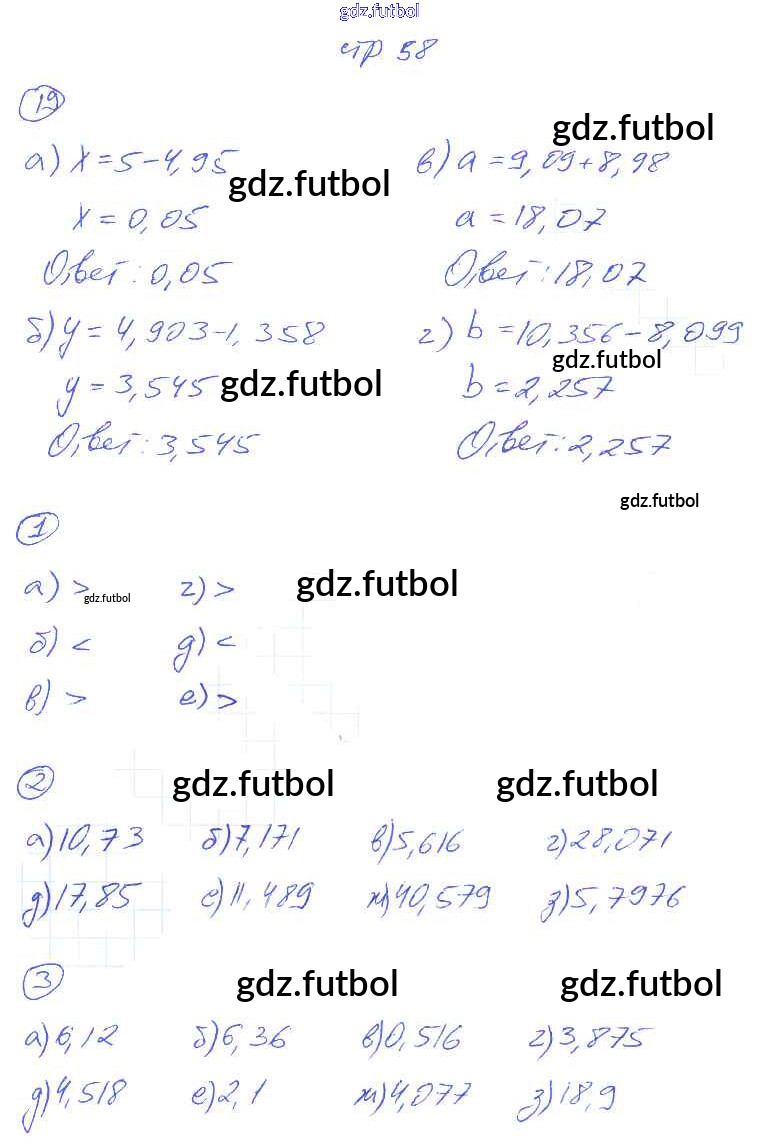 gdz.futbol
стр 58
19
а) x = 5 - 4,95
gdz.futbol
x = 0,05
Ответ: 0,05
б) y = 4,903 - 1,358
y = 3,545
gdz.futbol
Ответ: 3,545
gdz.futbol
в) a = 9,09 + 8,98
a = 18,07
Ответ: 18,07
г) b = 10,356 - 8,099
gdz.futbol
b = 2,257
Ответ: 2,257
gdz.futbol
1
а) > г) >
gdz.futbol
gdz.futbol
б) < д) <
в) > е) >
2
gdz.futbol gdz.futbol
а) 10,73 б) 7,171 в) 5,616 г) 28,071
д) 17,85 е) 11,489 ж) 40,579 з) 5,7976
3
gdz.futbol gdz.futbol
а) 6,12 б) 6,36 в) 0,516 г) 3,875
д) 4,518 е) 2,1 ж) 4,077 з) 18,9